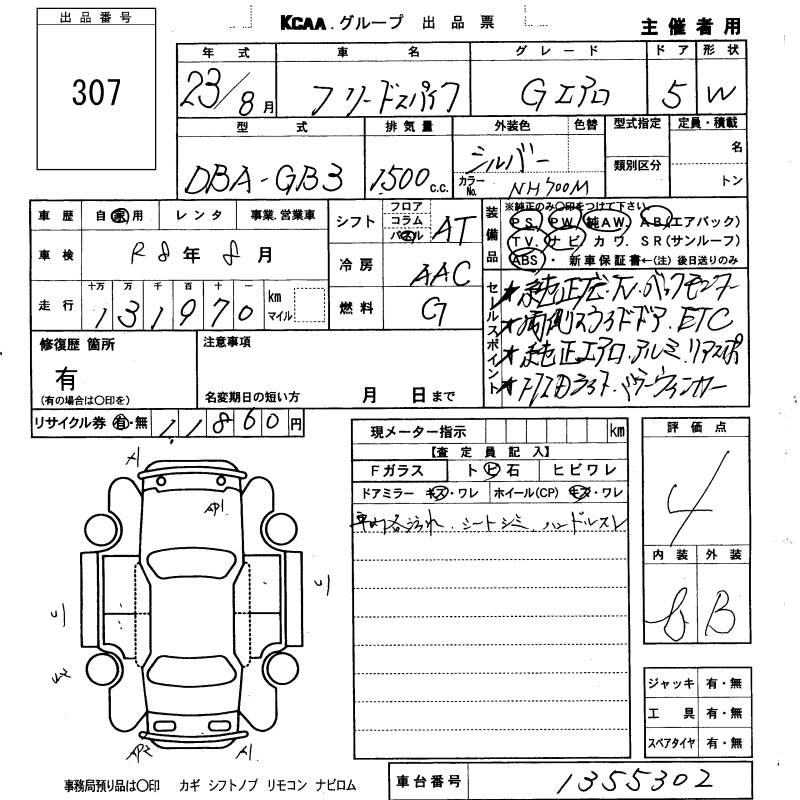 出品番号
307
KCAA.グループ 出品票
主催者用
年式 車名 グレード ドア 形状
23/8月 フリードスパイク Gエアロ 5 W
型式 排気量 外装色 色替 型式指定 定員・積載
DBA-GB3 1500c.c. シルバー
カラーNo. NH700M
類別区分
名
トン
車歴 自家用 レンタ 事業.営業車
車検 R8年8月
走行 十万 万 千 百 十 一
131970 km マイル
シフト フロア コラム パネル AT
冷房 AAC
燃料 G
装備品 ※純正のみ〇印をつけて下さい
PS. PW. 純AW. AB.(エアバック)
TV. ナビ カワ. SR(サンルーフ)
ABS・ 新車保証書←(注)後日送りのみ
セールスポイント
★純正ナビ.TV.バックモニター
★両側スライドドア.ETC
★純正エアロ.アルミ.リアスポ
★HIDライト.ドアミラーウィンカー
修復歴 箇所
有
(有の場合は〇印を)
注意事項
名変期日の短い方 月 日まで
リサイクル券 有・無 11860円
現メーター指示 km
【査定員記入】
Fガラス トビ石 ヒビワレ
ドアミラー キズ・ワレ ホイール(CP) キズ・ワレ
車内各汚れ.シートシミ.ハンドルスレ
評価点
4
内装 外装
B
ジャッキ 有・無
工具 有・無
スペアタイヤ 有・無
A1
AP1
AP2 A1
事務局預り品は〇印 カギ シフトノブ リモコン ナビロム
車台番号 1355302